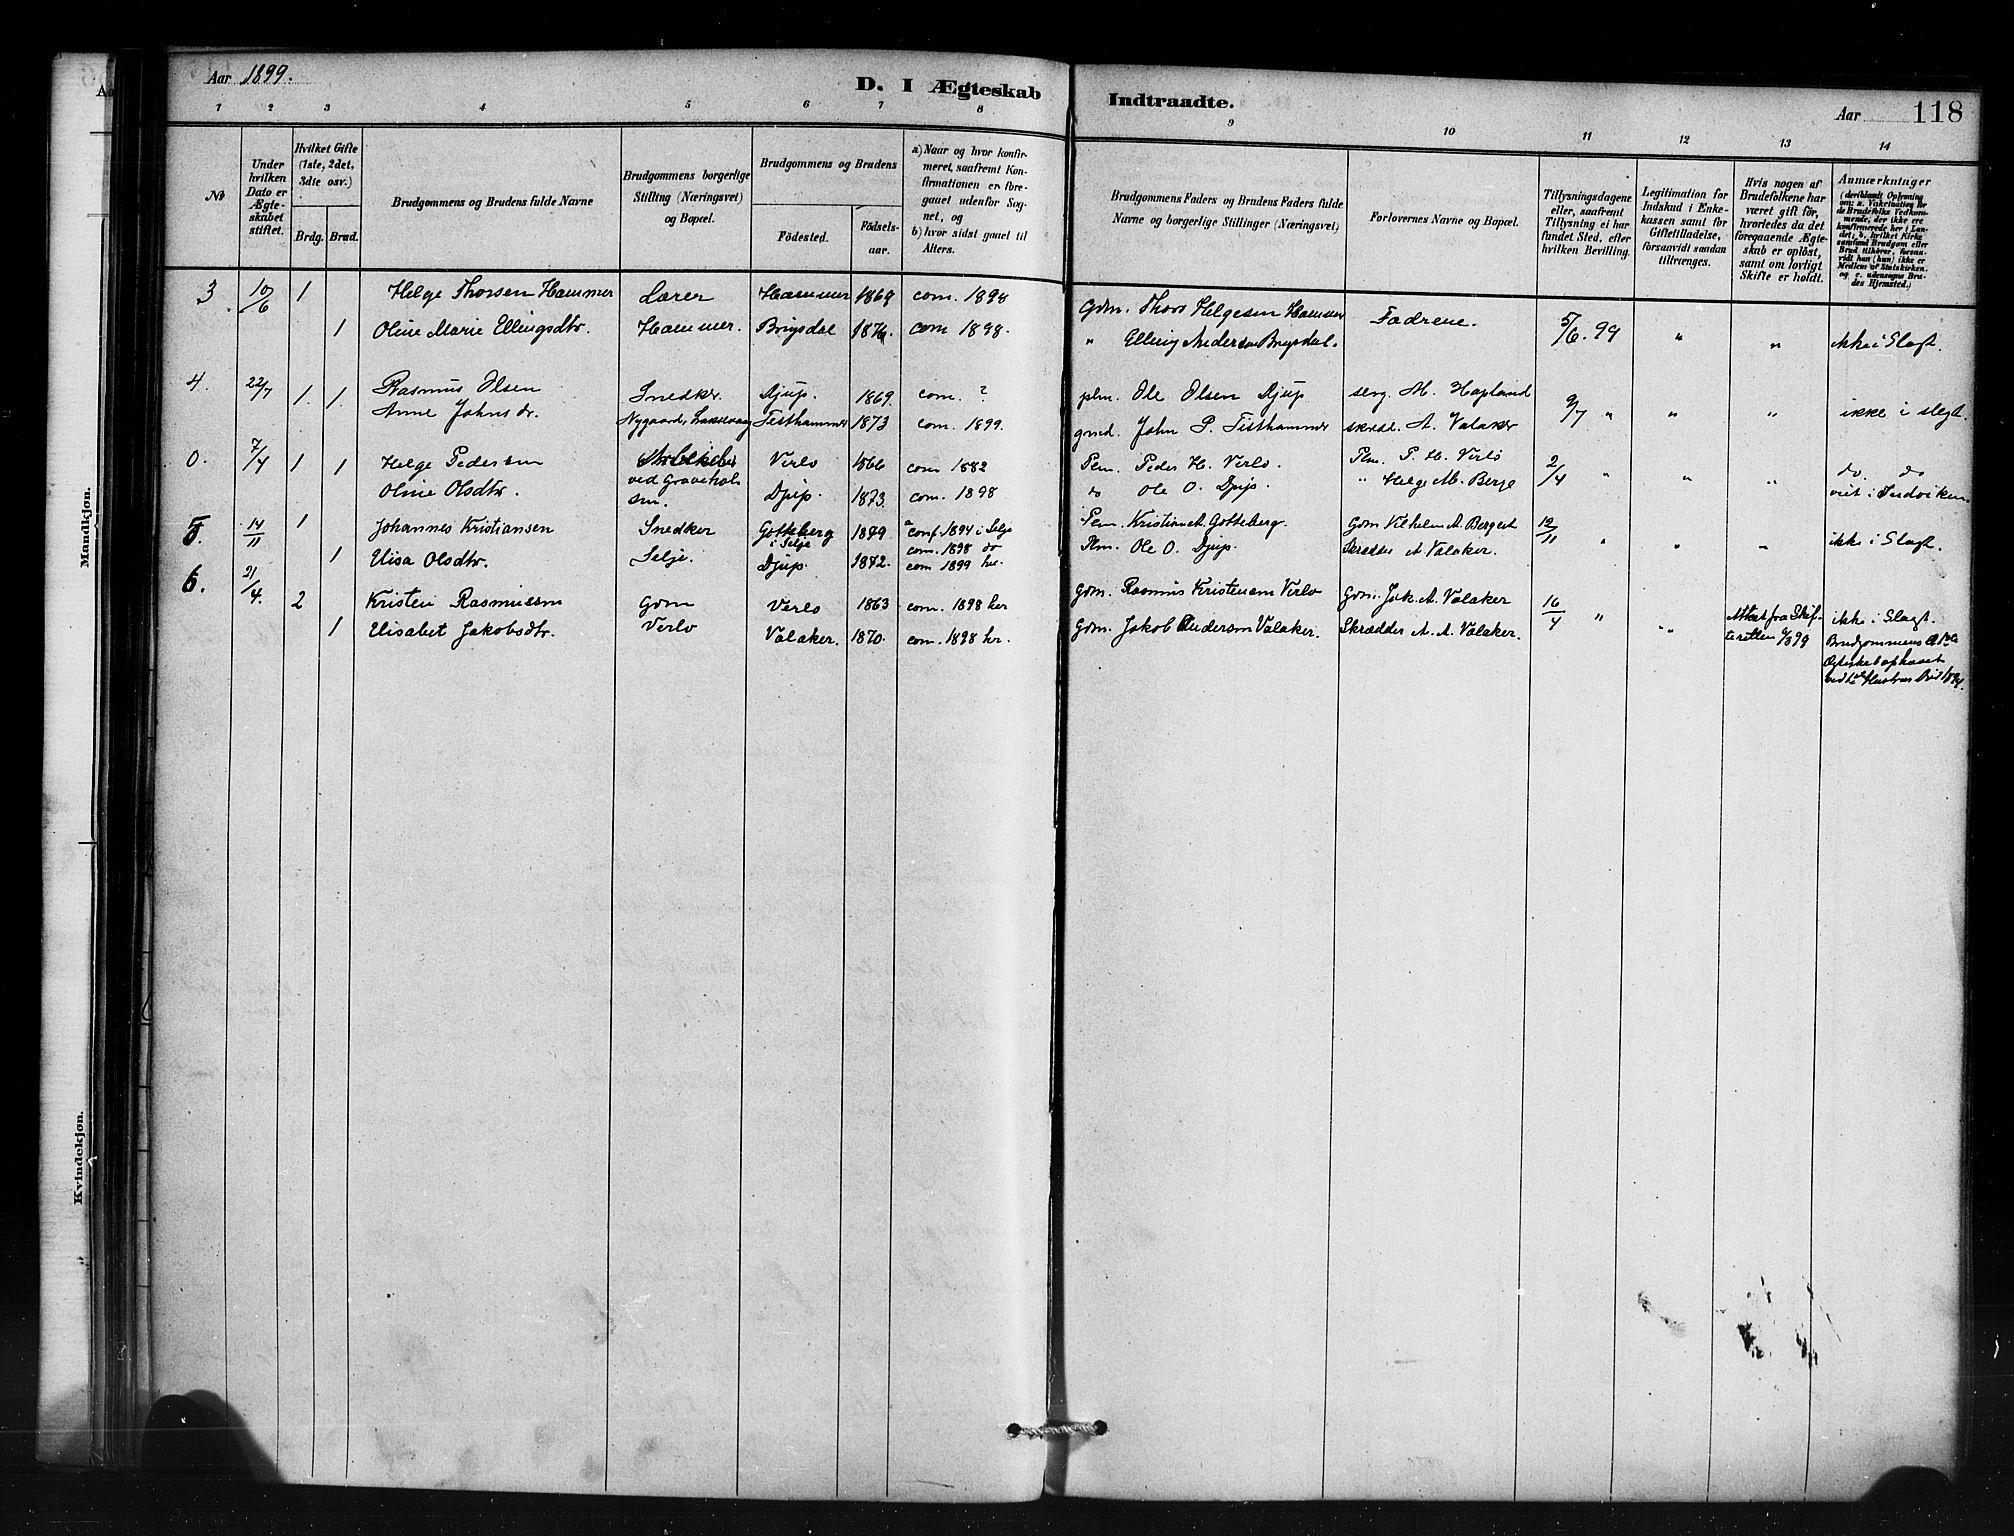 Aar 1899.
D. I Ægteskab
Indtraadte.
Aar
118
1 2 3 4 5 6 7 8
9 10 11 12 13 14
No
Under hvilken Dato er Ægteskabet stiftet.
Hvilket Gifte (1ste, 2det, 3die osv.)
Brdg. Brud.
Brudgommens og Brudens fulde Navne
Brudgommens borgerlige Stilling (Næringsvei) og Bopæl.
Brudgommens og Brudens
Födested.
Födselsaar.
a) Naar og hvor konfirmeret, saafremt Konfirmationen er foregaaet udenfor Sognet, og
b) hvor sidst gaaet til Alters.
Brudgommens Faders og Brudens Faders fulde Navne og borgerlige Stillinger (Næringsvei)
Forlovernes Navne og Bopæl.
Tillysningsdagene eller, saafremt Tillysning ei har fundet Sted, efter hvilken Bevilling.
Legitimation for Indskud i Enkekassen samt for Giftetilladelse, forsaavidt saadan tiltrænges.
Hvis nogen af Brudefolkene har været gift för, hvorledes da det foregaaende Ægteskab er oplöst, samt om lovligt Skifte er holdt.
Anmærkninger
(deriblandt Oplysning om: a. Vakcination for de Brudefolks Vedkommende, der ikke ere konfirmerede her i Landet; b. hvilket Kirkesamfund Brudgom eller Brud tilhörer, forsaavidt han (hun) ikke er Medlem af Statskirken, og c. udensogns Brudes Hjemsted.)
3 10/6 1 Helge Thorsen Hammer Lærer Hammer 1869 com. 1898 Gdm. Thor Helgesen Hammer Fædrene. 5/6. 99 " " ikke i Slægt.
1 Oline Marie Ellingsdtr. Hammer. Brigsdal 1876 com 1898. " Elling Andersen Brigsdal.
4. 22/7 1. 1. Rasmus Olsen Snedker. Djup. 1869. com. ? plm. Ole Olsen Djup serg. M. Hapland 9/7 " " " ikke i slegt.
Anne Johnsdr. Nygaard, Laxevaag Tisthammer 1873 com. 1899. gmd. John P. Tisthammer skræd. A. Valaker
0. 7/4 1 1 Helge Pedersen Verlo 1866 com 1882 Plm. Peder H. Verlo. Plm. P. H. Verlo 2/4 " " " do do
Oline Olsdtr. ved Gravehalsen. Djup. 1873. com. 1898 do Ole O. Djup. " Helge M. Berge viet i Indviken
5. 14/11 1 Johannes Kristiansen Snedker Gotteberg i Selje 1879 a conf. 1894 i Selje com. 1898 do Plm. Kristian A. Gotteberg. Gdm Vilhelm A. Berget 12/11 " " " ikke i Slægt.
1 Elisa Olsdtr. Selje. Djup. 1872. com 1899 her. Plm. Ole O. Djup. Skrædder A Valaker.
6. 21/4. 2 Kristen Rasmussen Gdm Verlo 1863 com. 1898 her Gdm. Rasmus Kristensen Verlo Gdm. Jak. A. Valaker 16/4 " " Attest fra Skifteretten ikke i Slægt.
1 Elisabet Jakobsdtr. Verlo Valaker. 1870. com. 1898 her. Gdm. Jakob Anderson Valaker. Skrædder A. A. Valaker. Brudgommens
Ægteskab ophævet
ved Hustrus Död 1894.
Mandkjøn.
Kvindekjøn.